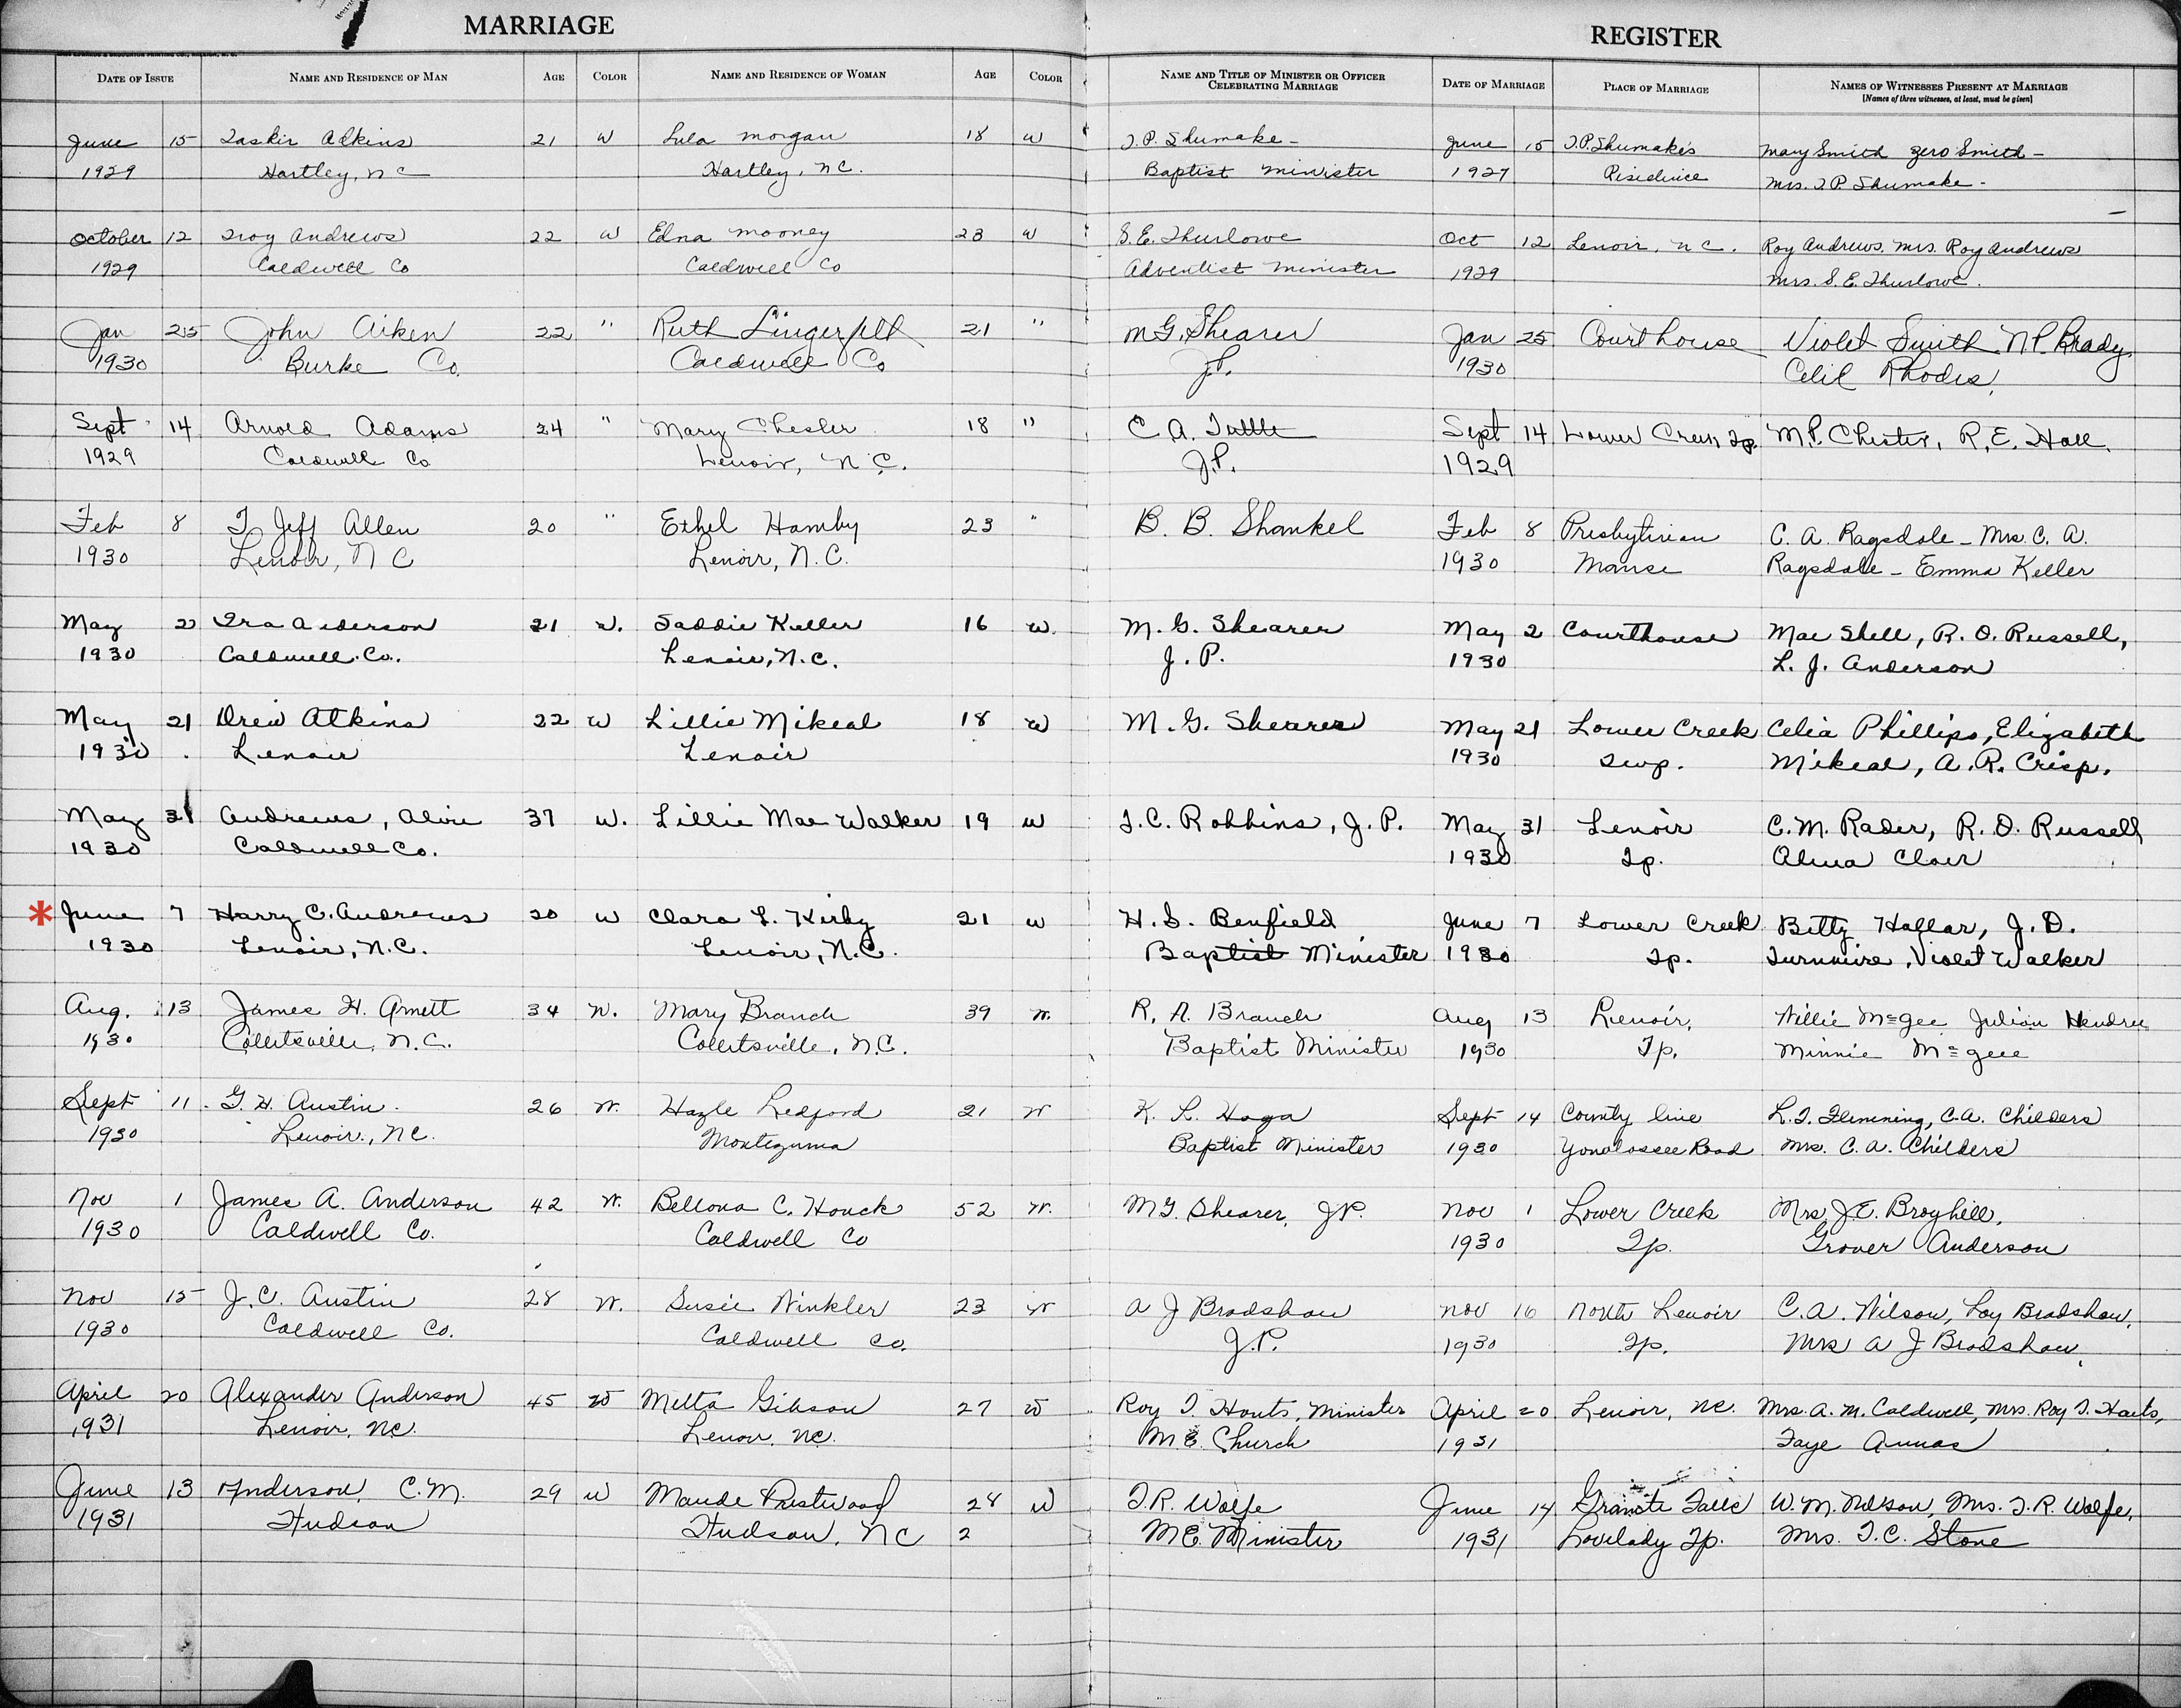 MARRIAGE
REGISTER
DATE OF ISSUE NAME AND RESIDENCE OF MAN AGE COLOR NAME AND RESIDENCE OF WOMAN AGE COLOR NAME AND TITLE OF MINISTER OR OFFICER CELEBRATING MARRIAGE DATE OF MARRIAGE PLACE OF MARRIAGE NAMES OF WITNESSES PRESENT AT MARRIAGE
[Names of three witnesses, at least, must be given]
June 15 Adkins 21 W Lula Morgan 18 W T.P. Shumake - June 15 T.P. Shumake's Mary Smith Zero Smith -
1929 Hartley, NC Hartley, NC. Baptist Minister 1929 Residence Mrs. T P Shumake -
October 12 Troy Andrews 22 W Edna Mooney 23 W S.E. Thurlowe Oct 12 Lenoir, NC. Roy Andrews. Mrs. Roy Andrews
1929 Caldwell Co Caldwell Co Adventist Minister 1929 Mrs. S.E. Thurlowe.
Jan 25 John Aiken 22 " Ruth Lingerfelt 21 " M G. Shearer Jan 25 Courthouse Violet Smith N.P. Brady
1930 Burke Co. Caldwell Co J.P. 1930 Rhodes,
Sept 14 Arnold Adams 24 " Mary Chester 18 " C. A. Tuttle Sept 14 Lower Creek Tp. M.P. Chester, R.E. Hall.
1929 Caldwell Co Lenoir, N.C. J.P. 1929
Feb 8 T. Jeff Allen 20 " Ethel Hamby 23 " B. B. Shankel Feb 8 Presbyterian C. A. Ragsdale - Mrs. C. A.
1930 Lenoir, N C Lenoir, N.C. 1930 Manse Ragsdale - Emma Keller
May 2 Ira Anderson 21 W. Saddie Keller 16 W. M. G. Shearer May 2 Courthouse Mae Shell, R. O. Russell,
1930 Caldwell Co. Lenoir, N.C. J. P. 1930 L. J. Anderson
May 21 Drew Atkins 22 W Lillie Mikeal 18 W M. G. Shearer May 21 Lower Creek Celia Phillips, Elizabeth
1930 Lenoir Lenoir 1930 Twp. Mikeal, A. R. Crisp.
May 31 Andrews, 37 W. Lillie Mae Walker 19 W J. C. Robbins, J. P. May 31 Lenoir C. M. Rader, R. O. Russell
1930 Caldwell Co. 1930 Tp. Alma Clair
* June 7 Harry C. Andrews 20 W Clara L. Kirby 21 W H. S. Benfield June 7 Lower Creek Betty Hallar, J. D.
1930 Lenoir, N.C. Lenoir, N.C. Baptist Minister 1930 Tp. Turnmire, Violet Walker
Aug. 13 James H. Arnett 34 W. Mary Branch 39 W. R. A. Branch Aug 13 Lenoir, Willie McGee Julion Hendrix
1930 Collettsville, N.C. Collettsville, N.C. Baptist Minister 1930 Tp. Minnie McGee
Sept 11 G. H. Austin 26 W. Hazle Ledford 21 W K. L. Haga Sept 14 County line L. T. Flemming, C.A. Childers
1930 Lenoir, NC. Montezuma Baptist Minister 1930 Yonalossee Road Mrs. C. A. Childers
Nov 1 James A. Anderson 42 W. Bellona C. Houck 52 W. M G. Shearer, J.P. Nov 1 Lower Creek Mrs J.E. Broyhill,
1930 Caldwell Co. Caldwell Co 1930 Tp. Grover Anderson
Nov 15 J. C. Austin 28 W. Susie Winkler 23 W A J Bradshaw Nov 16 North Lenoir C. A. Wilson, Loy Bradshaw,
1930 Caldwell Co. Caldwell Co. J.P. 1930 Tp. Mrs A J Bradshaw.
April 20 Alexander Anderson 45 W Metta Gibson 27 W Roy T Houts, Minister April 20 Lenoir, NC. Mrs. A. M. Caldwell, Mrs. Roy T. Houts,
1931 Lenoir, NC. Lenoir, NC. M E. Church 1931 Faye Annas
June 13 Anderson, C. M. 29 W Maude Prestwood 28 W T. R. Wolfe June 14 Granite Falls W. M. Nelson, Mrs. T. R. Wolfe,
1931 Hudson Hudson, NC 2 M E. Minister 1931 Lovelady Tp. Mrs. T. C. Stone